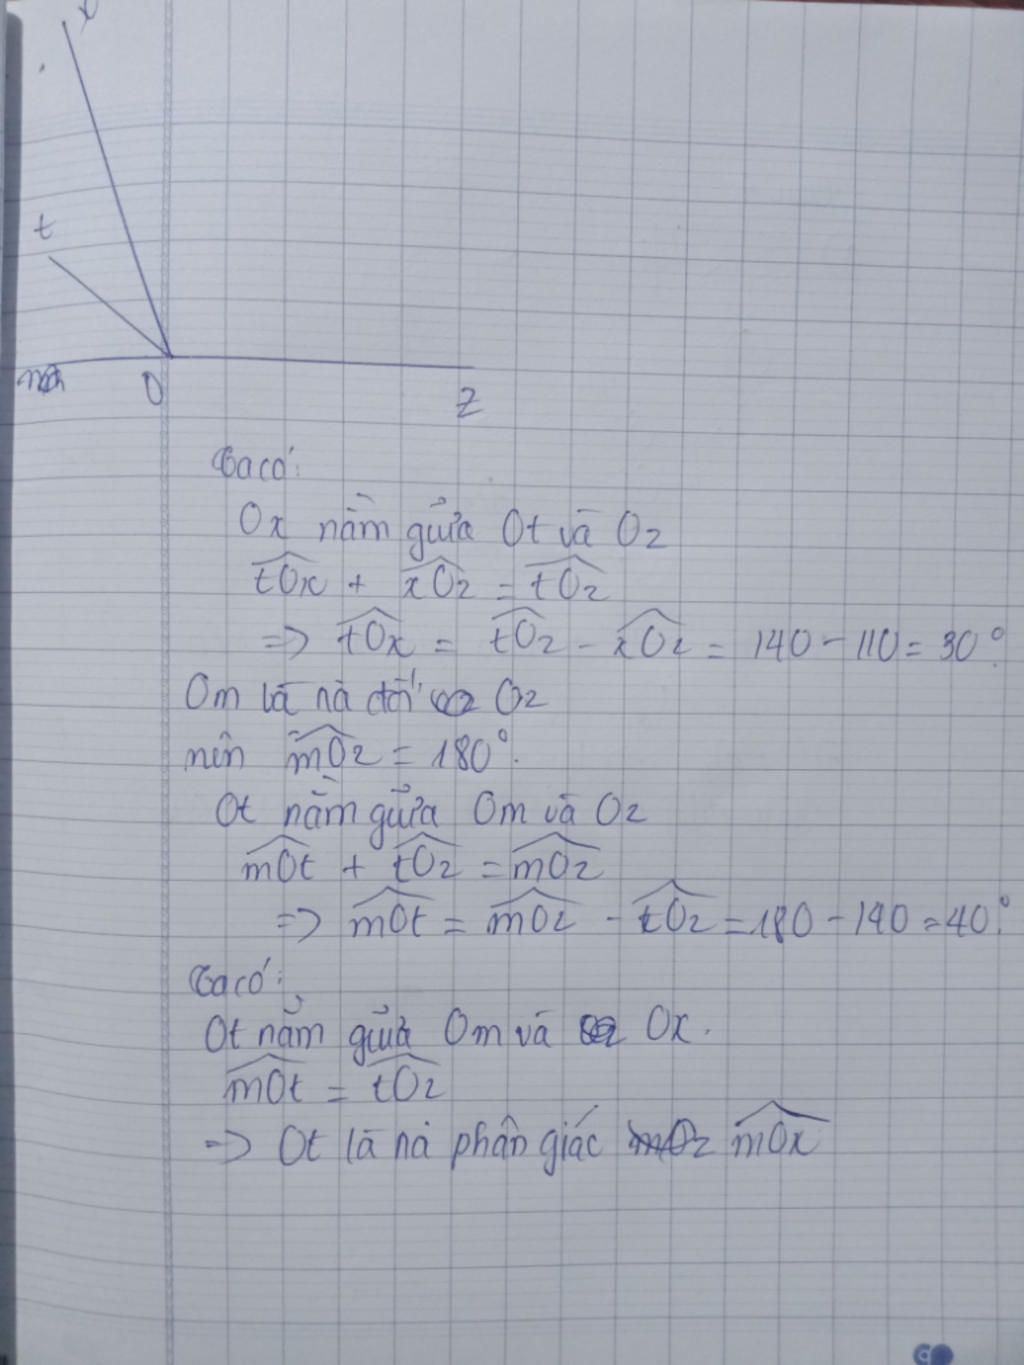 x
t
m O z
Ta có:
Ox nằm giữa Ot và Oz
tOx + xOz = tOz
=> tOx = tOz - xOz = 140 - 110 = 30°.
Om là nà đối Oz
nên mOz = 180°.
Ot nằm giữa Om và Oz
mOt + tOz = mOz
=> mOt = mOz - tOz = 180 - 140 = 40°.
Ta có:
Ot nằm giữa Om và Ox.
mOt = tOz
=> Ot là nà phận giác mOz mOx